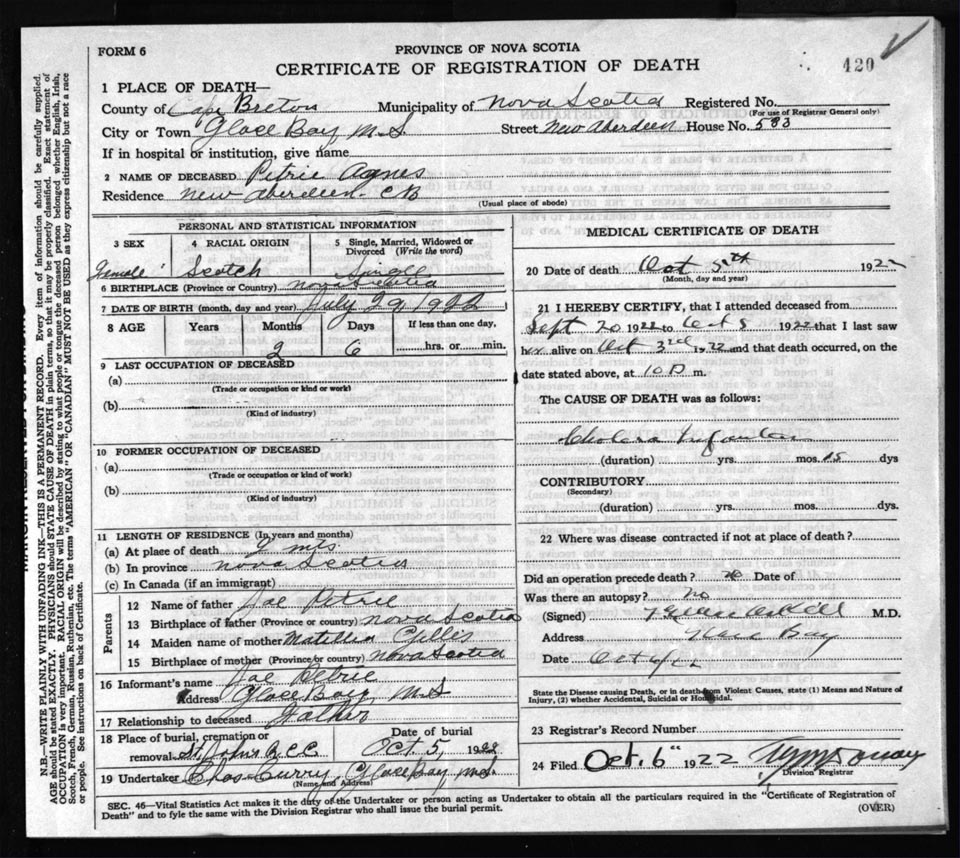 FORM 6
PROVINCE OF NOVA SCOTIA
420
CERTIFICATE OF REGISTRATION OF DEATH
1 PLACE OF DEATH—
County of Cape Breton Municipality of Nova Scotia Registered No.
(For use of Registrar General only)
City or Town Glace Bay N.S. Street New Aberdeen House No. 583
If in hospital or institution, give name
2 NAME OF DECEASED Petrie Agnes
Residence New Aberdeen. CB
(Usual place of abode)
PERSONAL AND STATISTICAL INFORMATION
3 SEX 4 RACIAL ORIGIN 5 Single, Married, Widowed or Divorced (Write the word)
Female Scotch Single
6 BIRTHPLACE (Province or Country) Nova Scotia
7 DATE OF BIRTH (month, day and year) July 29, 1922
8 AGE Years Months Days If less than one day,
2 6 hrs. or min.
9 LAST OCCUPATION OF DECEASED
(a)
(Trade or occupation or kind or work)
(b)
(Kind of industry)
10 FORMER OCCUPATION OF DECEASED
(a)
(Trade or occupation or kind of work)
(b)
(Kind of industry)
11 LENGTH OF RESIDENCE (In years and months)
(a) At place of death 2 mts.
(b) In province Nova Scotia
(c) In Canada (if an immigrant)
Parents
12 Name of father Joe Petrie
13 Birthplace of father (Province or country) Nova Scotia
14 Maiden name of mother Gillis
15 Birthplace of mother (Province or country) Nova Scotia
16 Informant's name Joe Petrie
Address Glace Bay N.S
17 Relationship to deceased Father
18 Place of burial, cremation or Date of burial
removal St John's R.C.C. Oct 5, 1922
19 Undertaker Chas Curry, Glace Bay N.S.
(Name and Address)
MEDICAL CERTIFICATE OF DEATH
20 Date of death Oct 5th 1922
(Month, day and year)
21 I HEREBY CERTIFY, that I attended deceased from
Sept 20 1922 to Oct 5 1922 that I last saw
her alive on Oct 3rd 1922 and that death occurred, on the
date stated above, at 10 m.
The CAUSE OF DEATH was as follows:
Cholera Infantum
(duration) yrs. mos. 15 dys
CONTRIBUTORY
(Secondary)
(duration) yrs. mos. dys.
22 Where was disease contracted if not at place of death?
Did an operation precede death? no Date of
Was there an autopsy? no
(Signed) M.D.
Address Glace Bay
Date Oct 6/22
State the Disease causing Death, or in death from Violent Causes, state (1) Means and Nature of
Injury, (2) whether Accidental, Suicidal or Homicidal.
23 Registrar's Record Number
24 Filed Oct. 6" 1922
Division Registrar
SEC. 46—Vital Statistics Act makes it the duty of the Undertaker or person acting as Undertaker to obtain all the particulars required in the "Certificate of Registration of
Death" and to fyle the same with the Division Registrar who shall issue the burial permit.
(OVER)
N.B.—WRITE PLAINLY WITH UNFADING INK—THIS IS A PERMANENT RECORD. Every item of information should be carefully supplied.
AGE should be stated EXACTLY. PHYSICIANS should STATE CAUSE OF DEATH in plain terms, so that it may be properly classified. Exact statement of
OCCUPATION is very important. RACIAL ORIGIN will be described by stating to what people or tongue the deceased person belonged whether English, Irish,
Scotch, French, German, Russian, Ruthenian, etc. The terms "AMERICAN" OR "CANADIAN" MUST NOT BE USED as they express citizenship but not a race
or people. See instructions on back of Certificate.